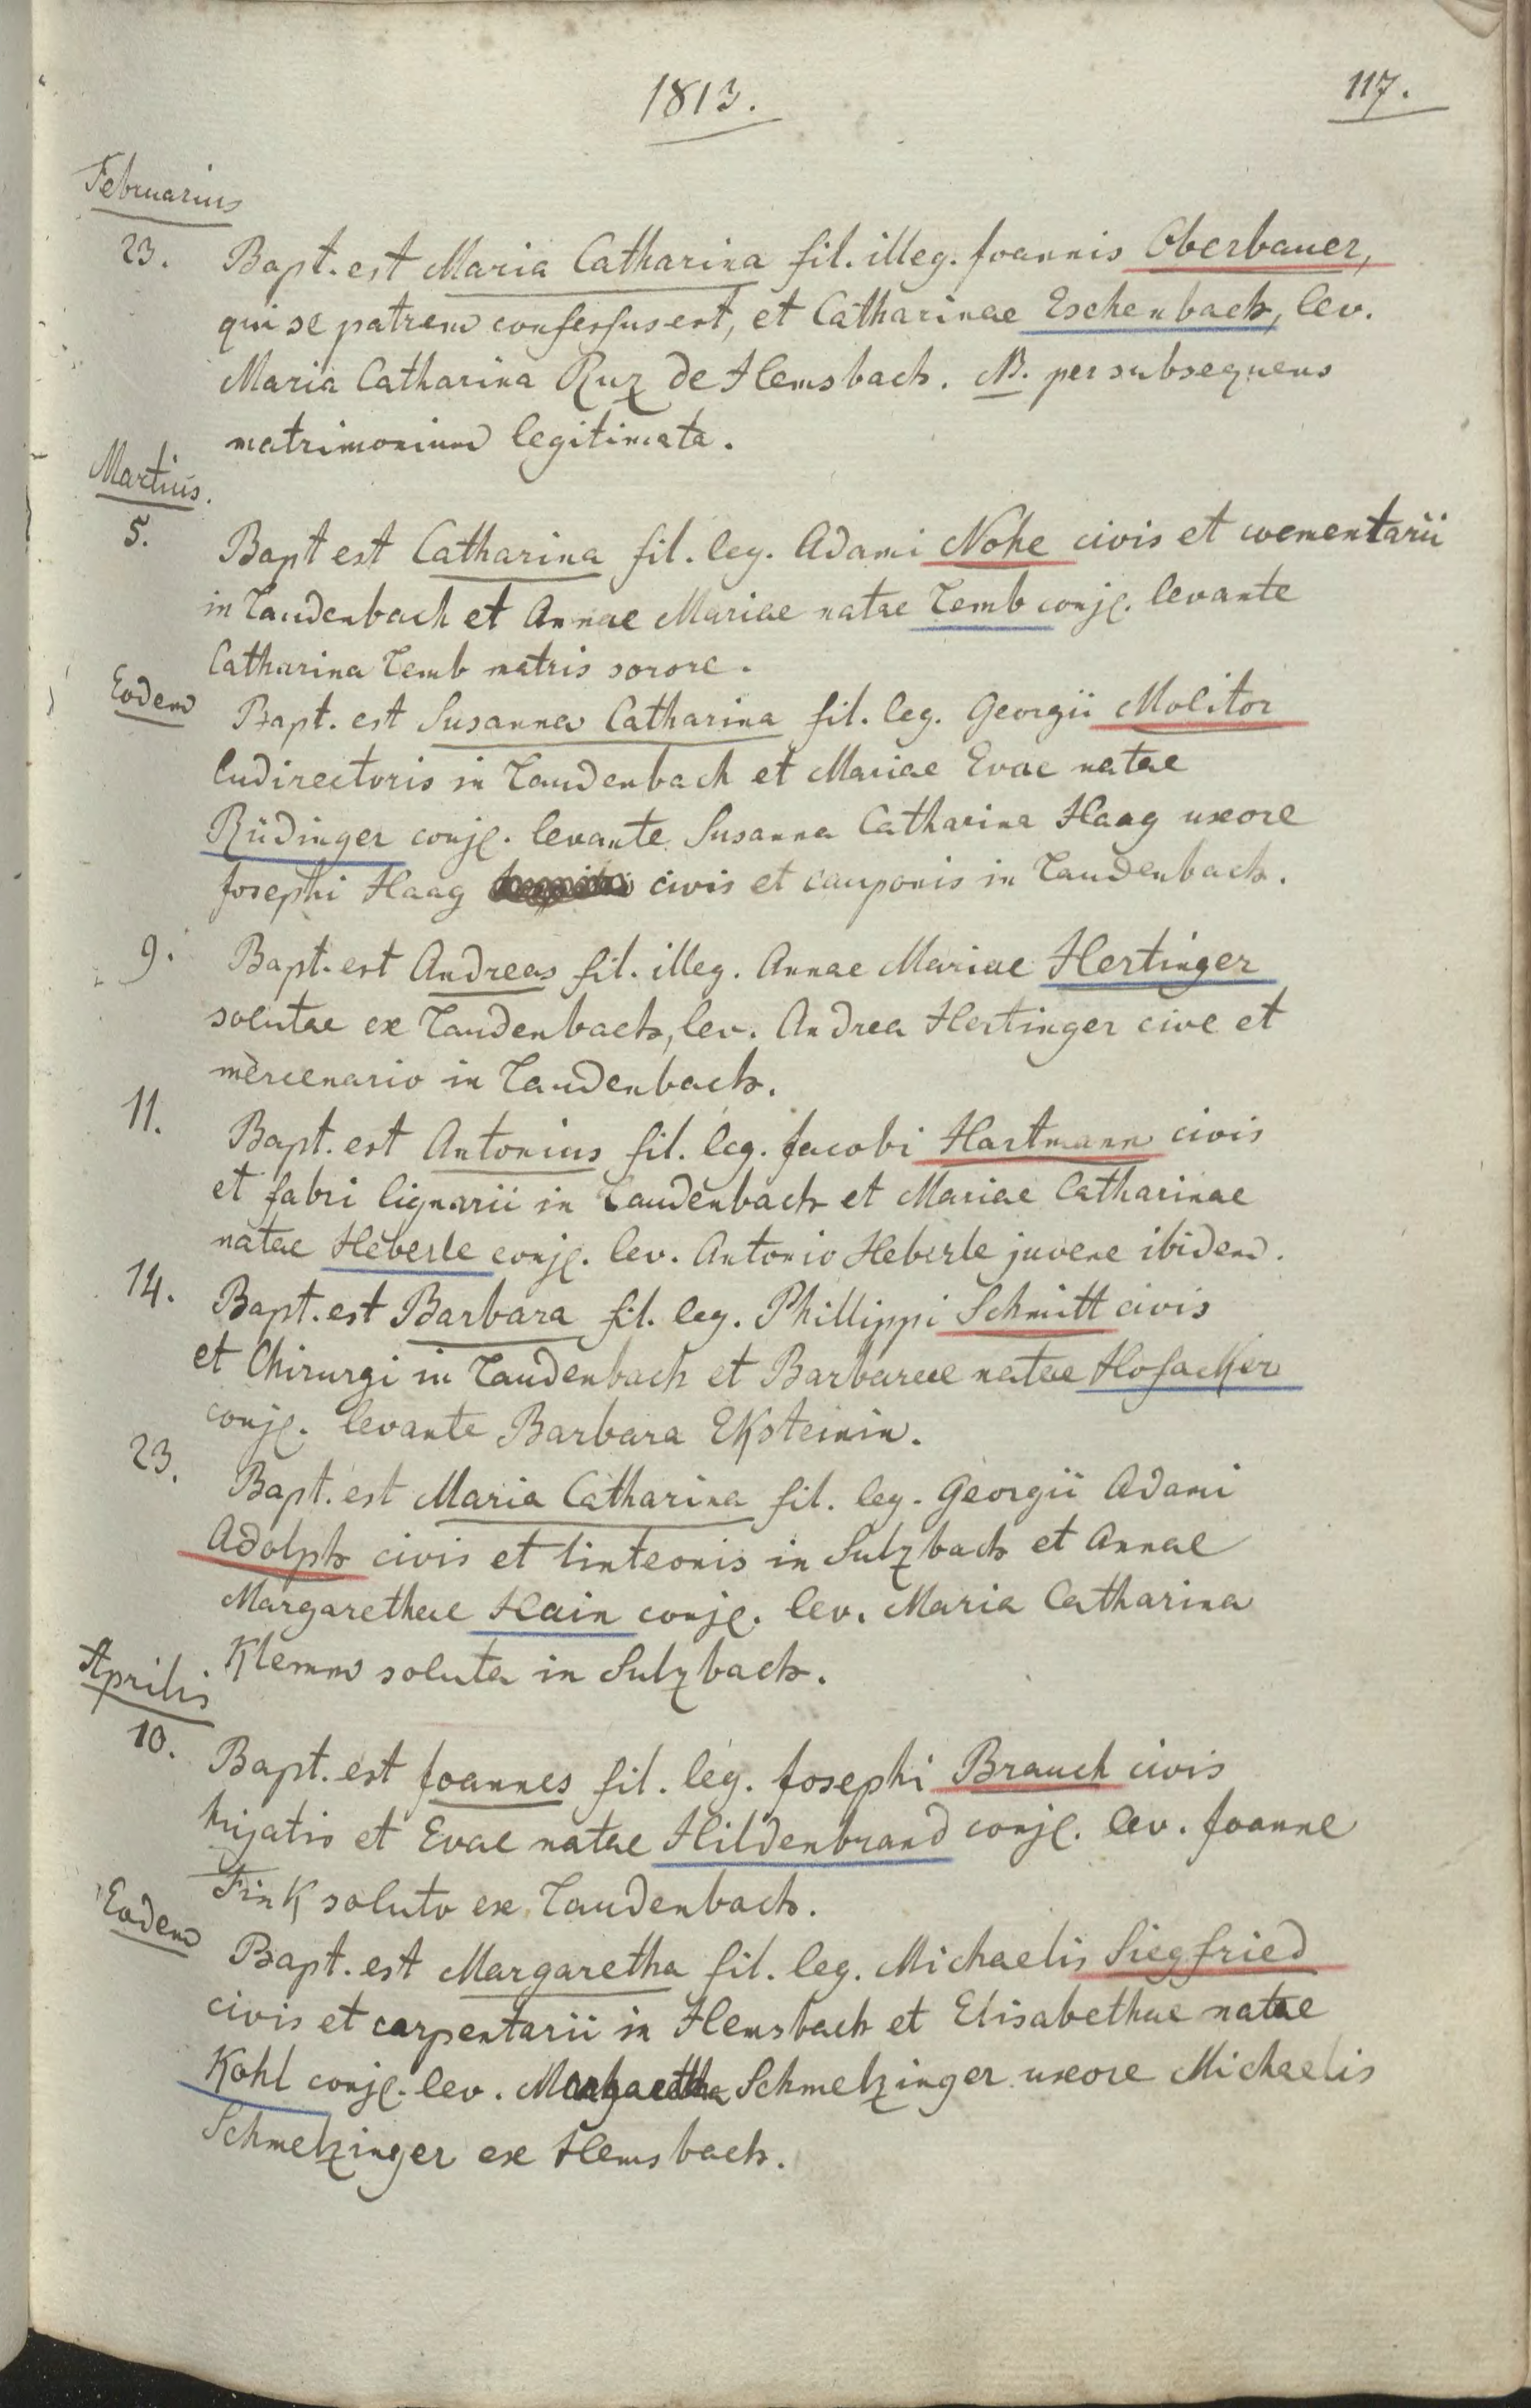 1813.
117.
Februarius
23. Bapt. est Maria Catharina fil. illeg. Joannis Oberbauer,
qui se patrem confessus est, et Catharinae Eschenbach, lev.
Maria Catharina Ruz de Hemsbach. NB. per subsequens
matrimonium legitimata.
Martius.
5. Bapt est Catharina fil. leg. Adami Nohe civis et coementarii
in Laudenbach et Annae Mariae natae Lemb conj. levante
Catharina Lemb matris sorore.
Eodem Bapt. est Susanna Catharina fil. leg. Georgii Molitor
ludirectoris in Laudenbach et Mariae Evae natae
Rüdinger conj. levante Susanna Catharina Haag uxore
Josephi Haag civis et cauponis in Laudenbach.
9. Bapt. est Andreas fil. illeg. Annae Mariae Hertinger
solutae ex Laudenbach, lev. Andrea Hertinger cive et
mercenario in Laudenbach.
11. Bapt. est Antonius fil. leg. Jacobi Hartmann civis
et fabri lignarii in Laudenbach et Mariae Catharinae
natae Heberle conj. lev. Antonio Heberle juvene ibidem.
14. Bapt. est Barbara fil. leg. Phillippi Schmitt civis
et Chirurgi in Laudenbach et Barbarae natae Hofacker
conj. levante Barbara Eksteinin.
23. Bapt. est Maria Catharina fil. leg. Georgii Adami
Adolph civis et linteonis in Sulzbach et Annae
Margarethae Hain conj. lev. Maria Catharina
Klemm soluta in Sulzbach.
Aprilis
10. Bapt. est Joannes fil. leg. Josephi Brauch civis
hujatis et Evae natae Hildenbrand conj. lev. Joanne
Fink soluto ex Laudenbach.
Eodem Bapt. est Margaretha fil. leg. Michaelis Siegfried
civis et carpentarii in Hemsbach et Elisabethae natae
Kohl conj. lev. Margaretha Schmelzinger uxore Michaelis
Schmelzinger ex Hemsbach.